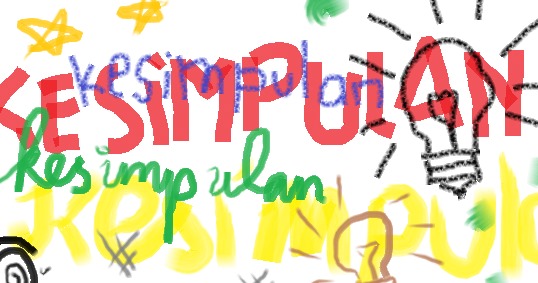 kesimpulan
KESIMPULAN
kesimpulan
kesimpula